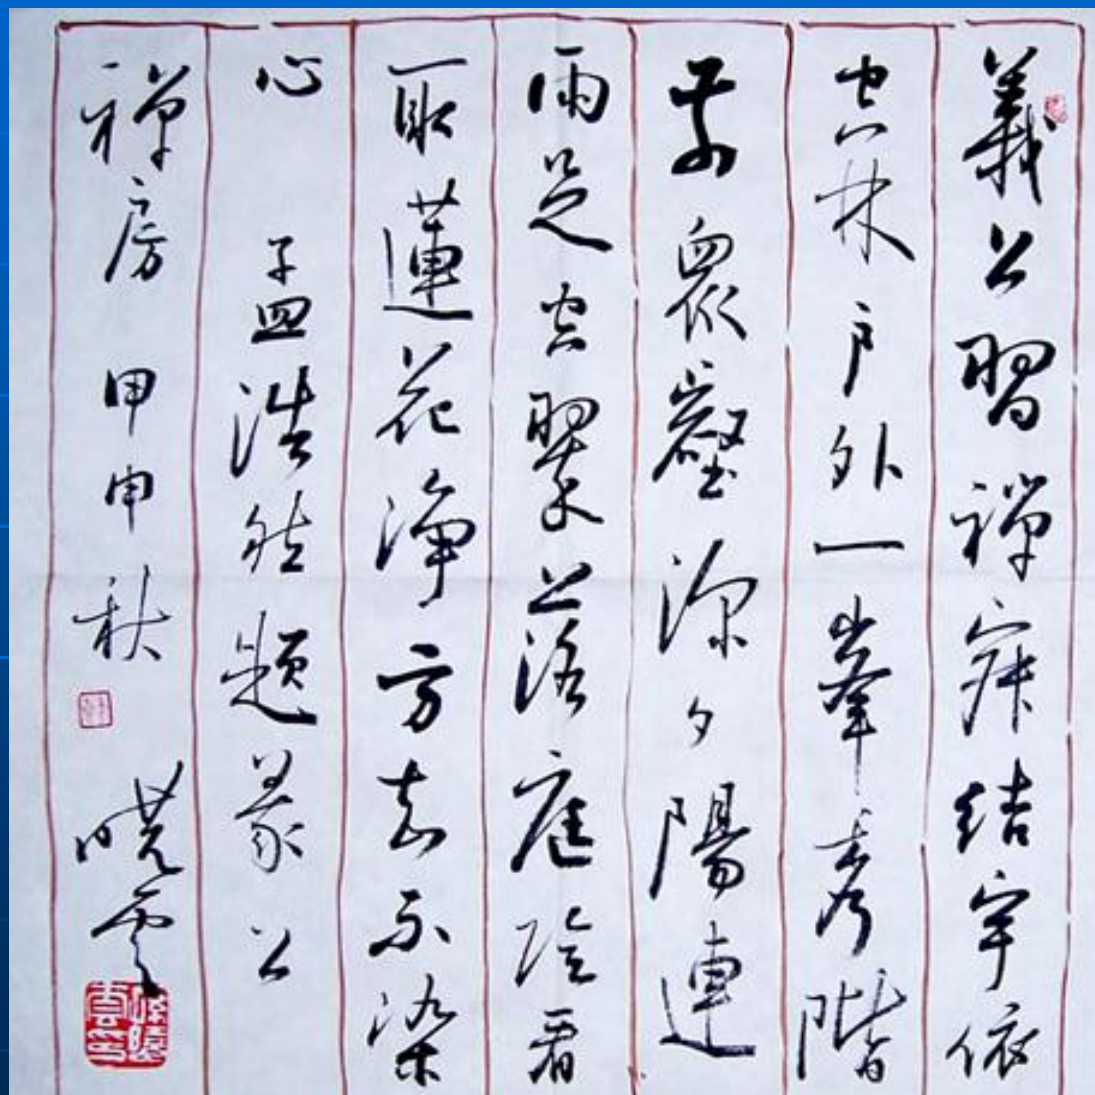 義公習禪寂結宇依
空林戶外一峯秀階
前衆壑深夕陽連
雨足空翠落庭陰看
取蓮花淨方知不染
心 孟浩然題義公
禪房 甲申秋 曉雲
孫曉雲印